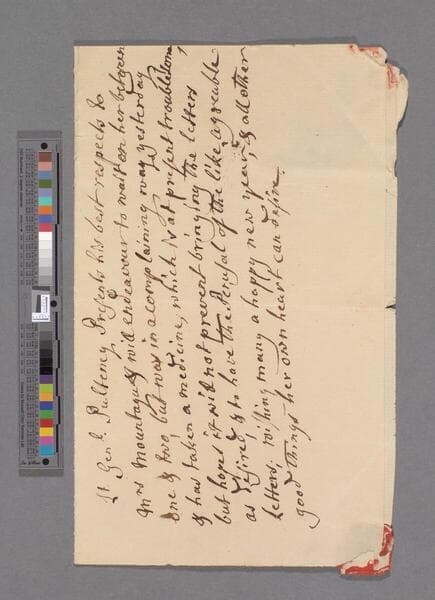 Lt Genl. Pulteney Presents his best respects to
Mrs Mountague, & will endeavour to wait on her between
one & two, but was in a complaining way yesterday
& has taken a medicine, which is at present troublesome,
but hopes it will not prevent bringing the letters
as desired, & to have the Perusal of the like agreeable
letters, wishing many a happy new year, & all other
good things her own heart can desire.